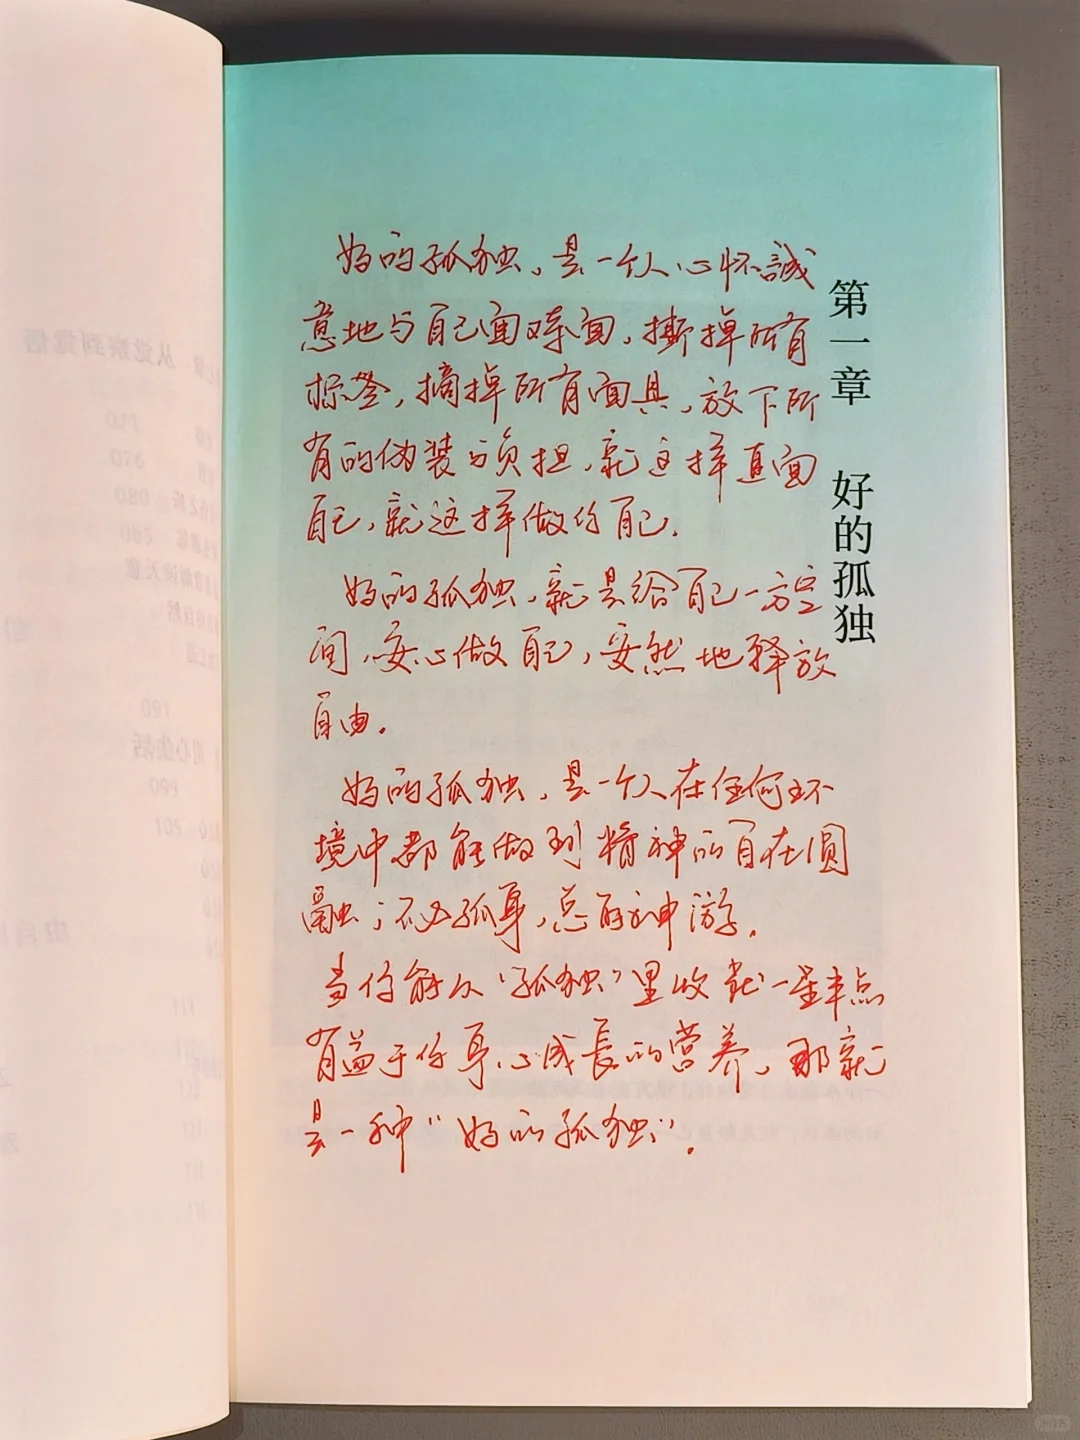 第一章 好的孤独
好的孤独,是一个人心怀誠
意地与自己面对面,撕掉所有
标签,摘掉所有面具,放下所
有的伪装与负担,就这样直面
自己,就这样做你自己.
好的孤独,就是给自己一方空
间,安心做自己,安然地释放
自由.
好的孤独,是一个人在任何环
境中都能做到精神的自在圆
融;不必孤身,总能神游.
当你能从“孤独”里收获一星半点
有益于你身心成長的营养,那就
是一种“好的孤独”.
从觉察到觉悟
071
076
080
085
091
见心生活
099
101
由自